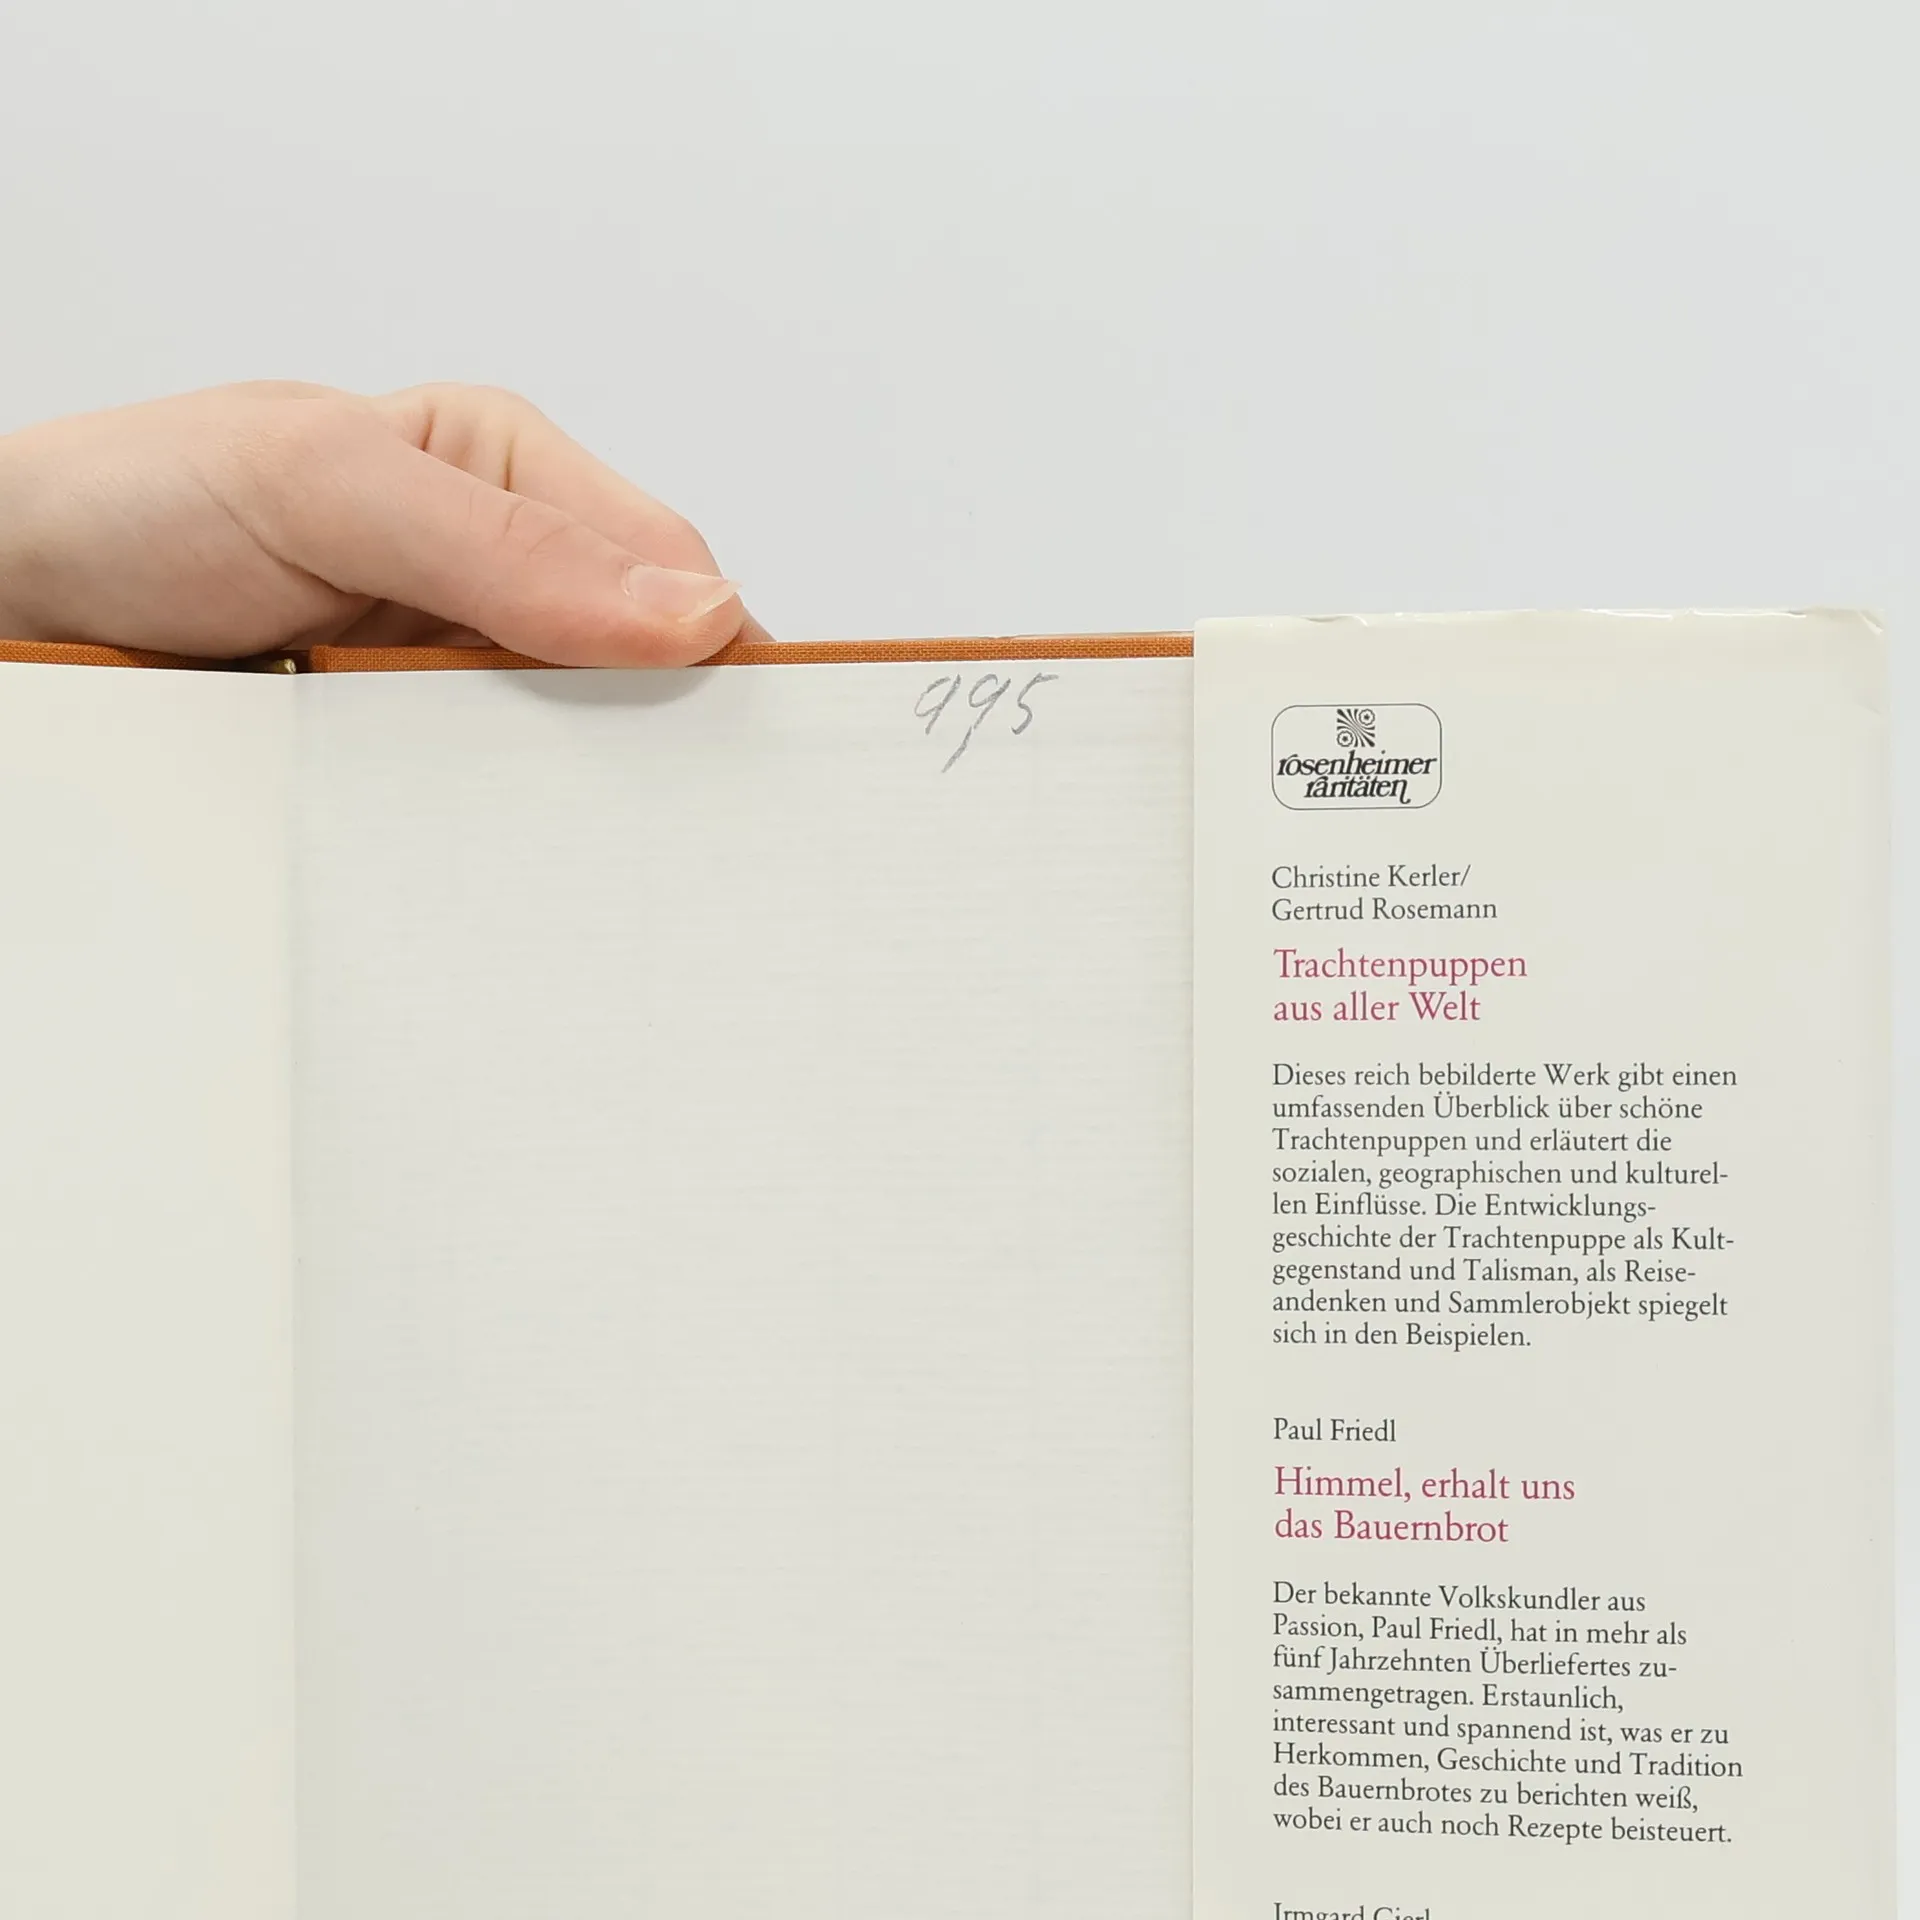 995
rosenheimer
raritäten
Christine Kerler/
Gertrud Rosemann
Trachtenpuppen
aus aller Welt
Dieses reich bebilderte Werk gibt einen
umfassenden Überblick über schöne
Trachtenpuppen und erläutert die
sozialen, geographischen und kulturel-
len Einflüsse. Die Entwicklungs-
geschichte der Trachtenpuppe als Kult-
gegenstand und Talisman, als Reise-
andenken und Sammlerobjekt spiegelt
sich in den Beispielen.
Paul Friedl
Himmel, erhalt uns
das Bauernbrot
Der bekannte Volkskundler aus
Passion, Paul Friedl, hat in mehr als
fünf Jahrzehnten Überliefertes zu-
sammengetragen. Erstaunlich,
interessant und spannend ist, was er zu
Herkommen, Geschichte und Tradition
des Bauernbrotes zu berichten weiß,
wobei er auch noch Rezepte beisteuert.
Irmgard Gierl